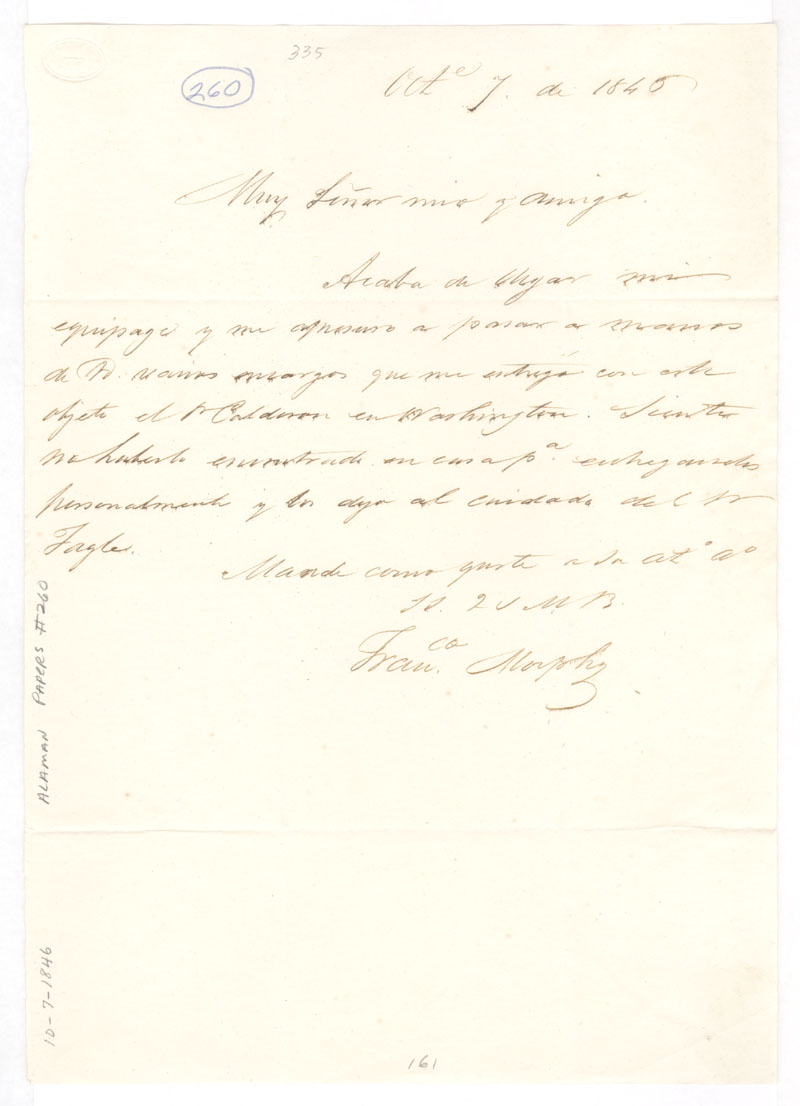 335
260
Oct.e 7. de 1846
Muy Señor mio y amigo.
Acaba de llegar mi
equipage y me apresuro a pasar a manos
de V. varios encargos que me entregó con este
objeto el Sr Calderon en Washington. Siento
no haberlo encontrado en casa p.a entregarselos
personalmente y los dejo al cuidado del Sr
Fagle.
Mande como guste a su at.o a.o
SS. Q S M B.
Fran.co Morphy
ALAMAN PAPERS #260
10-7-1846
161